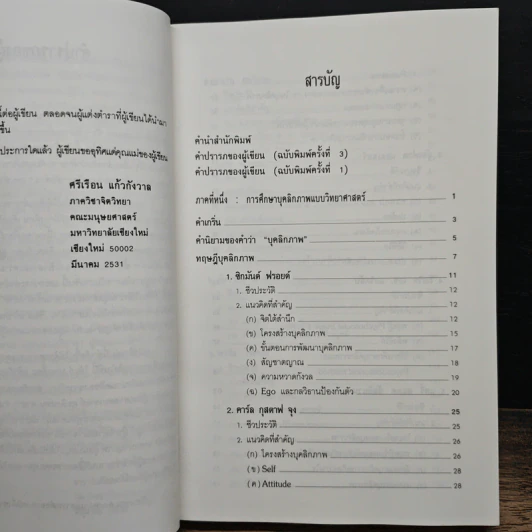 ต่อผู้เขียน ตลอดจนผู้แต่งตำราที่ผู้เขียนได้นำมา
ขึ้น
ประการใดแล้ว ผู้เขียนขออุทิศแด่คุณแม่ของผู้เขียน
ศรีเรือน แก้วกังวาล
ภาควิชาจิตวิทยา
คณะมนุษยศาสตร์
มหาวิทยาลัยเชียงใหม่
เชียงใหม่ 50002
มีนาคม 2531
สารบัญ
คำนำสำนักพิมพ์
คำปรารภของผู้เขียน (ฉบับพิมพ์ครั้งที่ 3)
คำปรารภของผู้เขียน (ฉบับพิมพ์ครั้งที่ 1)
ภาคที่หนึ่ง : การศึกษาบุคลิกภาพแบบวิทยาศาสตร์ 1
คำเกริ่น 3
คำนิยามของคำว่า "บุคลิกภาพ" 5
ทฤษฎีบุคลิกภาพ 7
1. ซิกมันด์ ฟรอยด์ 11
1. ชีวประวัติ 12
2. แนวคิดที่สำคัญ 12
(ก) จิตใต้สำนึก 12
(ข) โครงสร้างบุคลิกภาพ 15
(ค) ขั้นตอนการพัฒนาบุคลิกภาพ 17
(ง) สัญชาตญาณ 18
(จ) ความหวาดกังวล 19
(ฉ) Ego และกลวิธานป้องกันตัว 20
2. คาร์ล กุสตาฟ จุง 25
1. ชีวประวัติ 25
2. แนวคิดที่สำคัญ 26
(ก) โครงสร้างบุคลิกภาพ 26
(ข) Self 28
(ค) Attitude 28